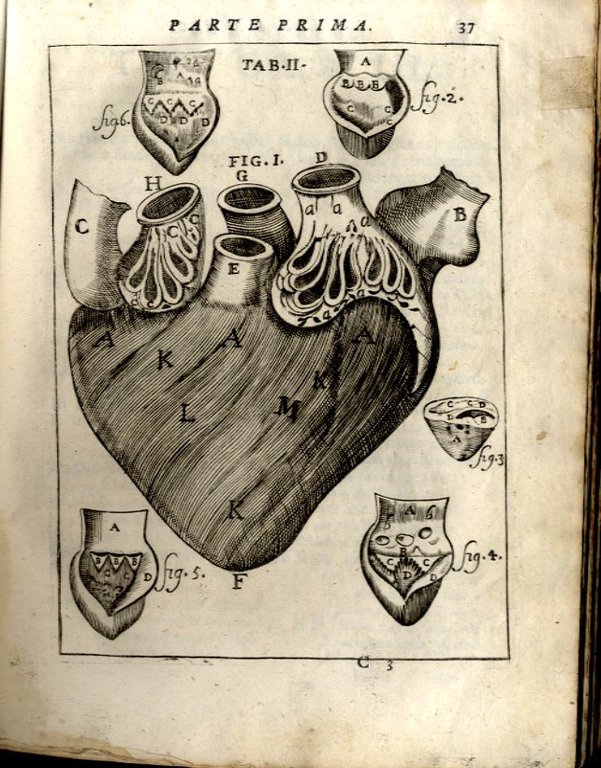 PARTE PRIMA.
37
TAB·II·
fig6.
B
A
C C C
D D D
A
B B B
C C
C
fig·2·
FIG·I·
H
G
D
C
C C
a a a
B
E
a a
A
K
A
K
A
L
M
K
F
C C D
D B
A
fig·3
A
B B B
C C
D
fig·5.
A
B
C C
D D
fig·4·
C 3